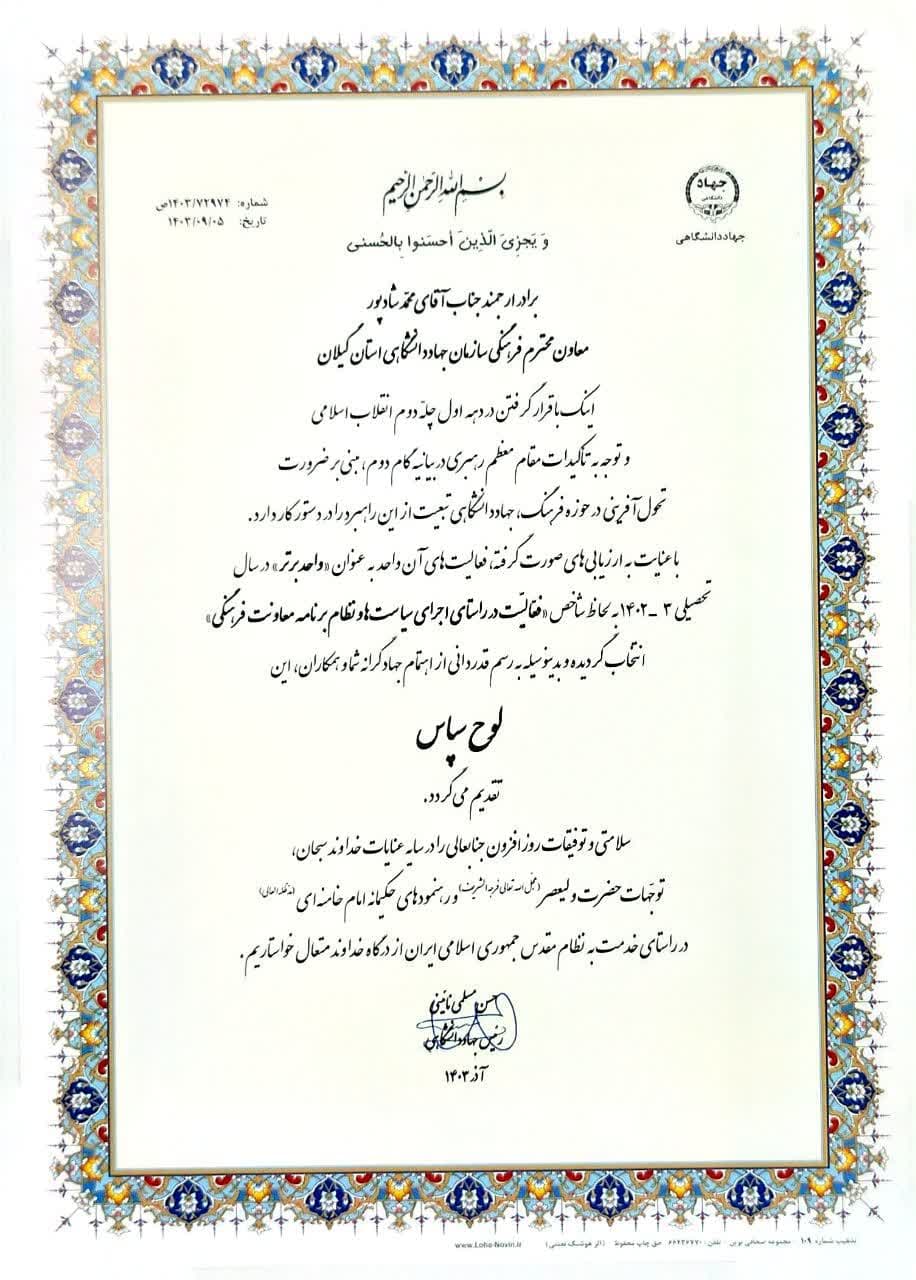 بسم الله الرحمن الرحیم
جهاد
دانشگاهی
جهاددانشگاهی
شماره: ۱۴۰۳/۷۲۹۷۴ص
تاریخ: ۱۴۰۳/۰۹/۰۵
وَ یَجزِیَ الَّذینَ أحسَنوا بِالحُسنی
برادر ارجمند جناب آقای محمد شادپور
معاون محترم فرهنگی سازمان جهاددانشگاهی استان گیلان
اینک با قرار گرفتن در دهه اول چلّه دوم انقلاب اسلامی
و توجه به تأکیدات مقام معظم رهبری در بیانیه گام دوم، مبنی بر ضرورت
تحول آفرینی در حوزه فرهنگ، جهاددانشگاهی تبعیت از این راهبرد را در دستور کار دارد.
با عنایت به ارزیابی های صورت گرفته، فعالیت های آن واحد به عنوان «واحد برتر» در سال
تحصیلی ۳ -۱۴۰۲ به لحاظ شاخص «فعالیّت در راستای اجرای سیاست ها و نظام برنامه معاونت فرهنگی»
انتخاب گردیده و بدینوسیله به رسم قدردانی از اهتمام جهادگرانه شما و همکاران، این
لوح سپاس
تقدیم می گردد.
سلامتی و توفیقات روز افزون جنابعالی را در سایه عنایات خداوند سبحان،
توجّهات حضرت ولیعصر (عجّل الله تعالی فرجه الشریف) و رهنمودهای حکیمانه امام خامنه ای (مدّظله العالی)
در راستای خدمت به نظام مقدس جمهوری اسلامی ایران از درگاه خداوند متعال خواستاریم.
حسن مسلمی نائینی
رئیس جهاددانشگاهی
آذر ۱۴۰۳
تذهیب شماره ۱۰۹ مجموعه صحافی نوین - تلفن: ۶۶۴۳۶۷۷۰ حق چاپ محفوظ (اثر هوشنگ نعمتی) www.Loho-Novin.ir